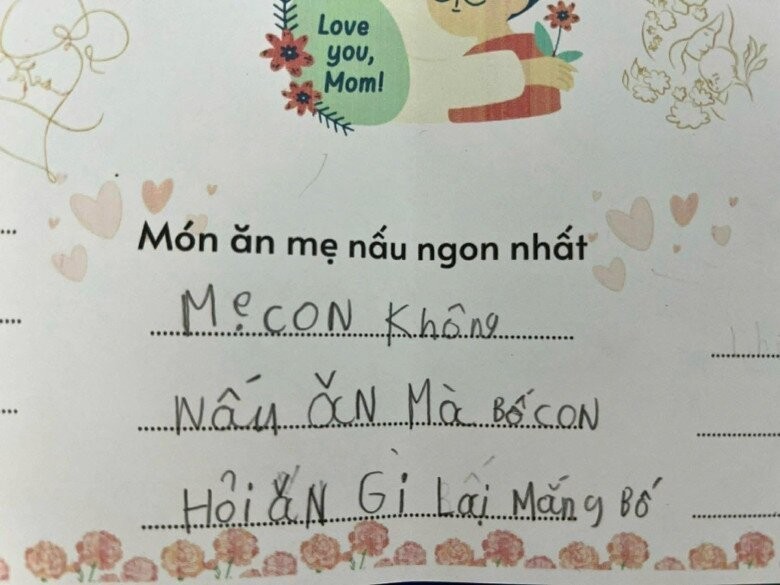 Love
you,
Mom!
Món ăn mẹ nấu ngon nhất
Mẹ CON Không
Nấu ăN Mà Bố CON
Hỏi ăN Gì Lại Mắng Bố